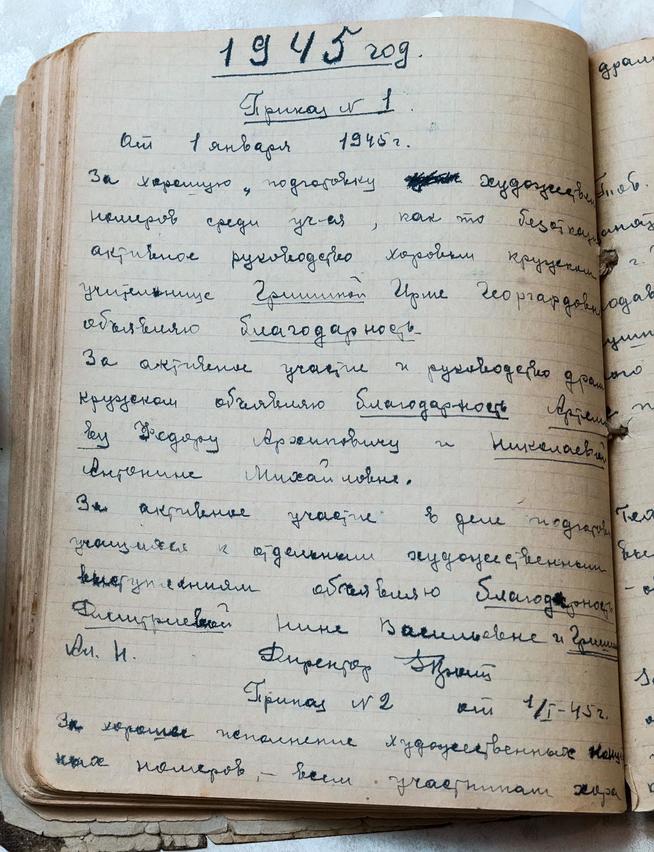 1945 год.
Приказ N 1.
От 1 января 1945 г.
За хорошую, подготовку художествен
номеров среди уч-ся, как то безотказн
активное руководство хоровым кружком
учительнице Гришиной Ирме Георгардовне
объявляю благодарность.
За активное участие и руководство драм
кружком объявляю благодарность Артемь
еву Федору Архиповичу и Николаевой
Антонине Михайловне.
За активное участие в деле подготов
учащихся к отдельным художественным
выступлениям объявляю благодарность
Дмитриевой Нине Васильевне и Гриши
Ал. Н. Директор
Приказ N 2 от 1/I-45 г.
За хорошее исполнение художественных
номеров, - всем участникам хора